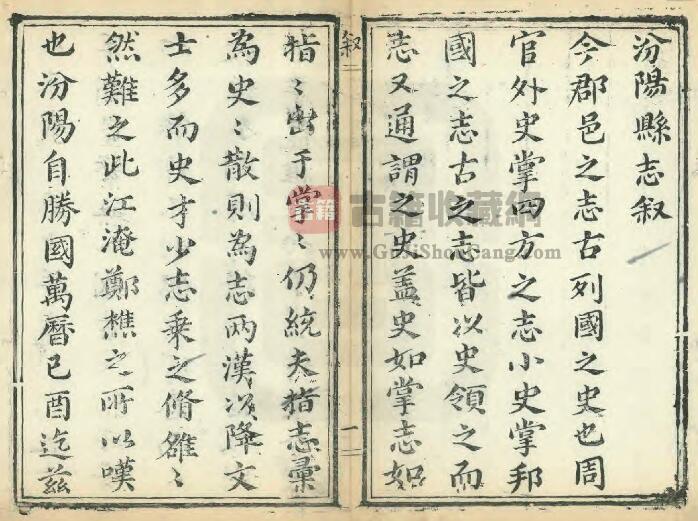 汾陽縣志叙
今郡邑之志古列國之史也周
官外史掌四方之志小史掌邦
國之志古之志皆以史領之而
志又通謂之史盖史如掌志如
叙
一
指〻出于掌〻仍統夫指志彙
為史〻散則為志两漢以降文
士多而史才少志乗之脩雖〻
然難之此江淹鄭樵之所以嘆
也汾陽自勝國萬曆己酉迄兹
古籍
古籍收藏網
www.GuJiShouCang.com